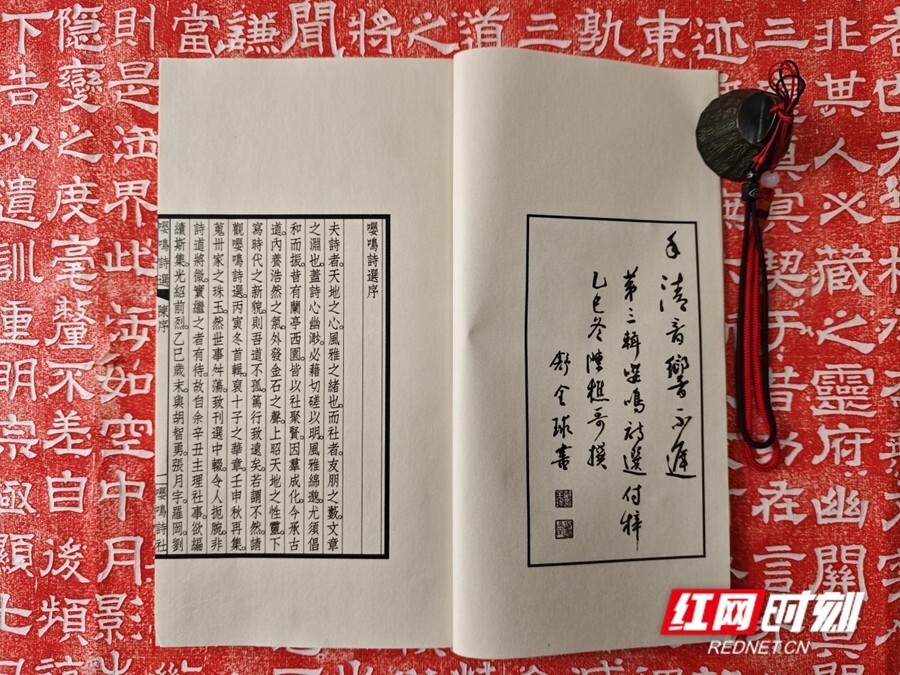 清音響不遲
第三輯嚶鳴詩選付梓
乙巳冬陳樵哥撰
舒全球書
嚶鳴詩選序
夫詩者。天地之心。風雅之緒也。而社者。友朋之藪。文章
之淵也。蓋詩心幽渺。必藉切磋以明。風雅綿邈。尤須倡
和而振。昔有蘭亭西園。皆以社聚賢。因羣成化。今承古
道。內養浩然之氣。外發金石之聲。上昭天地之性靈。下
寫時代之新貌。則吾道不孤。篤行致遠矣。若謂不然。請
觀嚶鳴詩選。丙寅冬首輯。裒十子之華章。壬申秋再集。
蒐卅家之珠玉。然世事舛蕩。致刊選中輟。令人扼腕。非
詩道將微。實繼之者有待。故自余辛丑主理社事。欲編
續斯集。光紹前烈。乙巳歲末。與胡智勇。張月宇。羅岡。劉
嚶鳴詩選 陳序 一 嚶鳴詩社
北其人必藏之靈府幽關
三真契于昔在言
迹
東
孰
三
道
之
將
聞
謙
當
則是海界此海如空中月影
隱變之度毫釐不差自後頻
下告以遺訓重明宗極顯
红网时刻
REDNET.CN